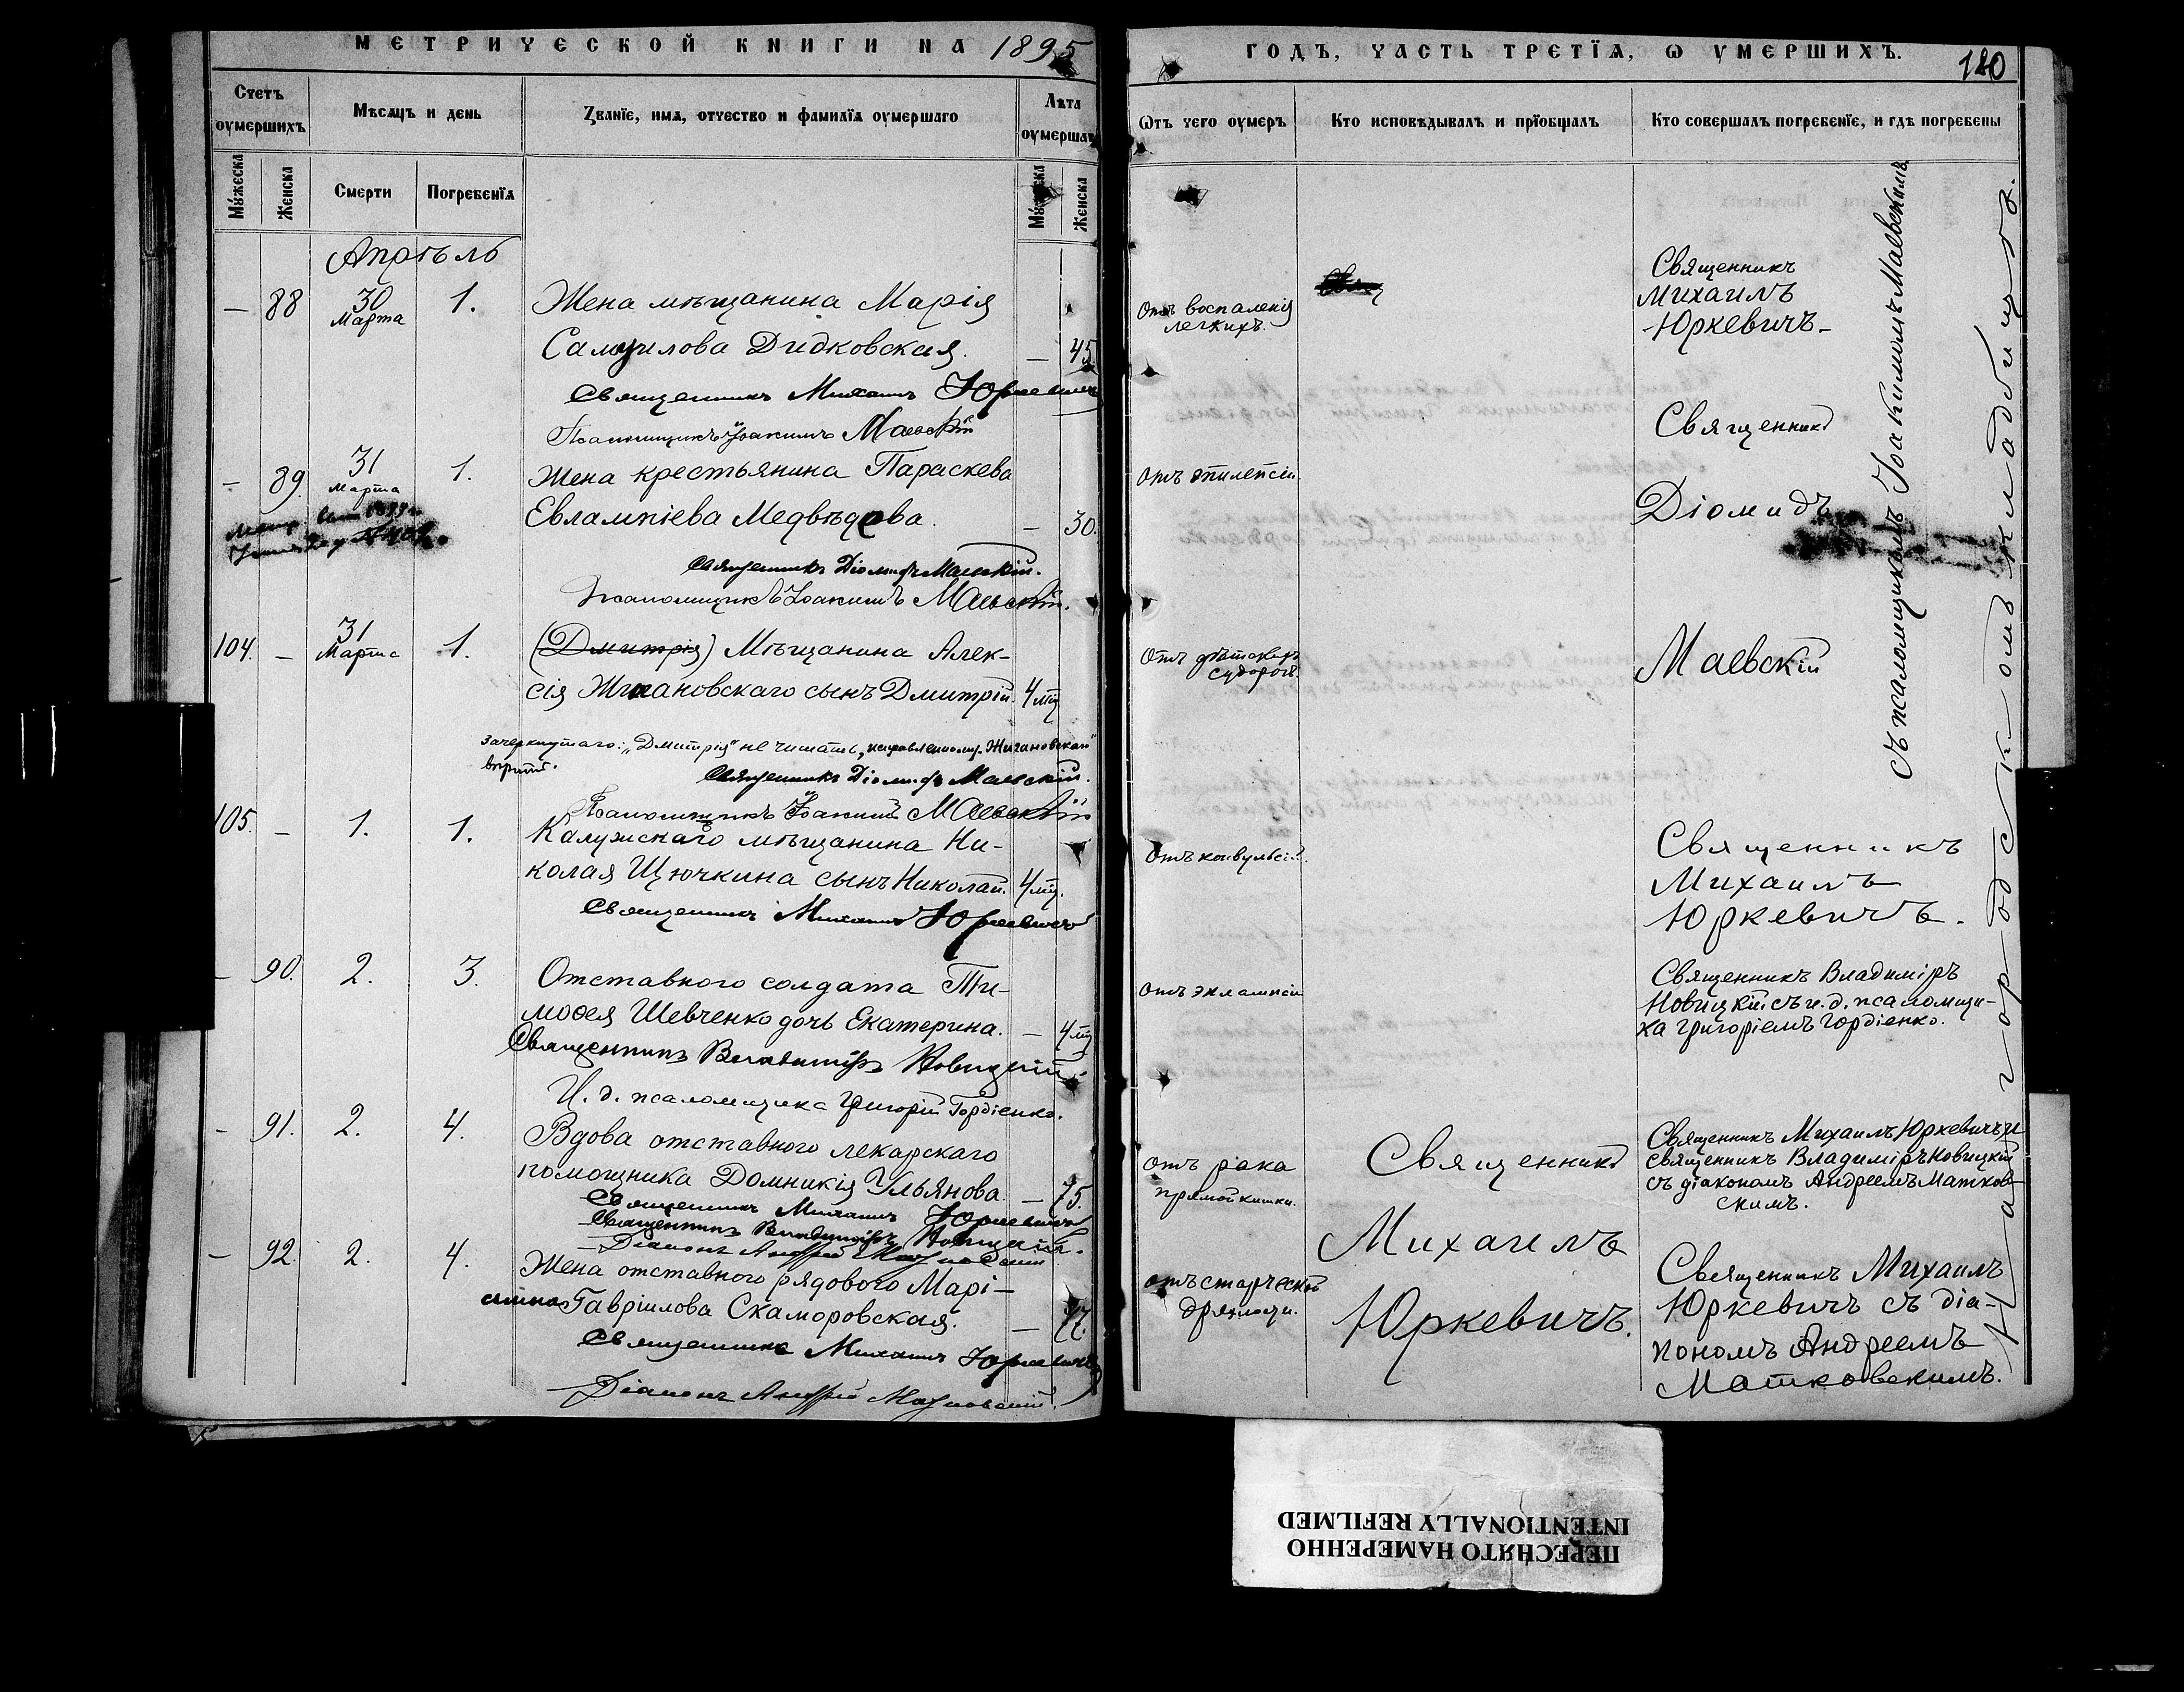 МЕТРИЧЕСКОЙ КНИГИ НА 1895
Счетъ оумершихъ
Мѣсяцъ и день
Званїе, имя, отчество и фамилїя оумершаго
Лѣта оумершаго
Мужеска
Женска
Смерти
Погребенїя
Мужеска
Женска
Апрѣль
— 88 30 Марта 1.
Жена мѣщанина Марія
Самуилова Дидковская. — 45.
Священникъ Михаилъ Юркевичъ
Псаломщикъ Іоакимъ Маевскій
— 89. 31 Марта 1.
Жена крестьянина Параскева
Евлампіева Медвѣдева. — 30.
Священникъ Діомидъ Маевскій.
Псаломщикъ Іоакимъ Маевскій.
104. — 31 Марта 1.
(Дмитрія) Мѣщанина Алек-
сія Жигановскаго сынъ Дмитрій. 4 мц
Зачеркнутаго: „Дмитрія" не читать, исправленному „Жигановскаго"
вѣрить.
Священникъ Діомидъ Маевскій.
Псаломщикъ Іоакимъ Маевскій
105. — 1. 1.
Калужскаго мѣщанина Ни-
колая Щючкина сынъ Николай. 4 мц.
Священникъ Михаилъ Юркевичъ
— 90. 2. 3.
Отставного солдата Ти-
моѳея Шевченко дочь Екатерина. — 4 мц
Священникъ Владиміръ Новицкій
И. д. псаломщика Григорій Гордіенко.
— 91. 2. 4.
Вдова отставного лекарскаго
помощника Домникія Ульянова. — 75.
Священникъ Михаилъ Юркевичъ
Священникъ Владиміръ Новицкій.
Діаконъ Андрей Матковскій
— 92. 2. 4.
Жена отставного рядового Марі-
Гавріилова Скаморовская. — 77.
Священникъ Михаилъ Юркевичъ
Діаконъ Андрей Матковскій.
ГОДЪ, ЧАСТЬ ТРЕТЇЯ, Ѡ УМЕРШИХЪ.
180
Ѿтъ чего оумеръ
Кто исповѣдывалъ и прїобщалъ
Кто совершалъ погребенїе, и гдѣ погребены
Отъ воспаленія
легкихъ.
Священникъ
Михаилъ
Юркевичъ
Отъ эпилепсіи.
Священникъ
Діомидъ
Отъ дѣтскихъ
судорогъ.
Маевскій
съ псаломщикомъ Іоакимомъ Маевскимъ.
Отъ конвульсій.
Священникъ
Михаилъ
Юркевичъ.
Отъ эклампсіи
Священникъ Владиміръ
Новицкій съ и. д. псаломщи-
ка Григоріемъ Гордіенко.
Отъ рака
прямой кишки.
Священникъ
Священникъ Михаилъ Юркевичъ и
священникъ Владиміръ Новицкій
съ діакономъ Андреемъ Матков-
скимъ.
Отъ старческой
дряхлости.
Михаилъ
Юркевичъ.
Священникъ Михаилъ
Юркевичъ съ діа-
кономъ Андреемъ
Матковскимъ.
На городскомъ кладбищѣ.
ПЕРЕСНЯТО НАМЕРЕННО
INTENTIONALLY REFILMED